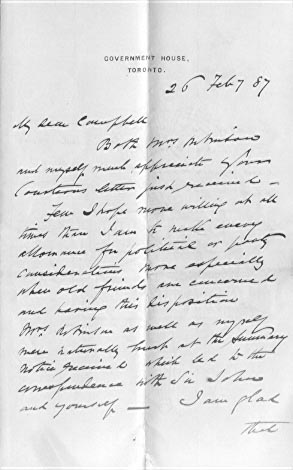 GOVERNMENT HOUSE,
TORONTO.
26 Feby 87
My dear Campbell
Both Mrs Robinson
and myself much appreciate your
Courteous letter just received –
Few I hope more willing at all
times than I am to make every
allowance for political or party
considerations more especially
when old friends are concerned
and having this disposition
Mrs Robinson as well as myself
were naturally hurt at the summary
notice received which led to the
correspondence with Sir John
and yourself — I am glad
that